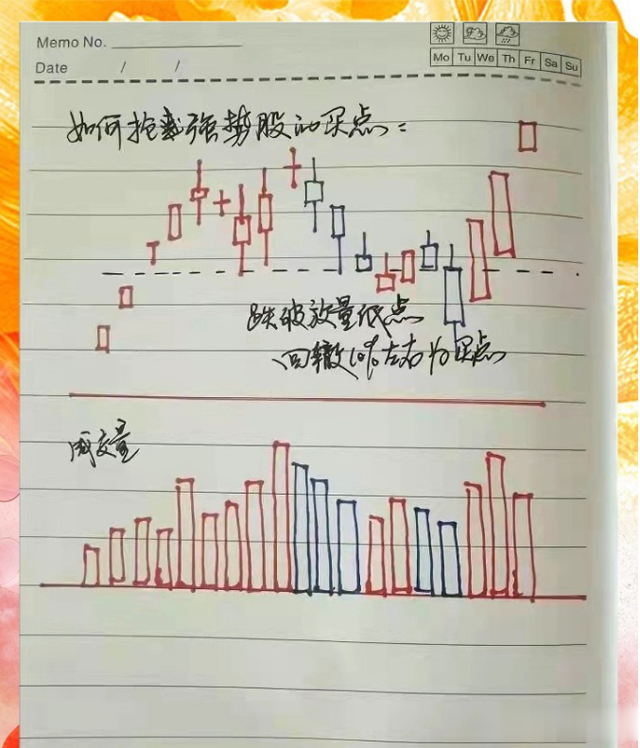 Memo No.
Date / /
Mo Tu We Th Fr Sa Su
如何抢到强势股的买点：
跌破放量低点
回辙10%左右为买点
成交量